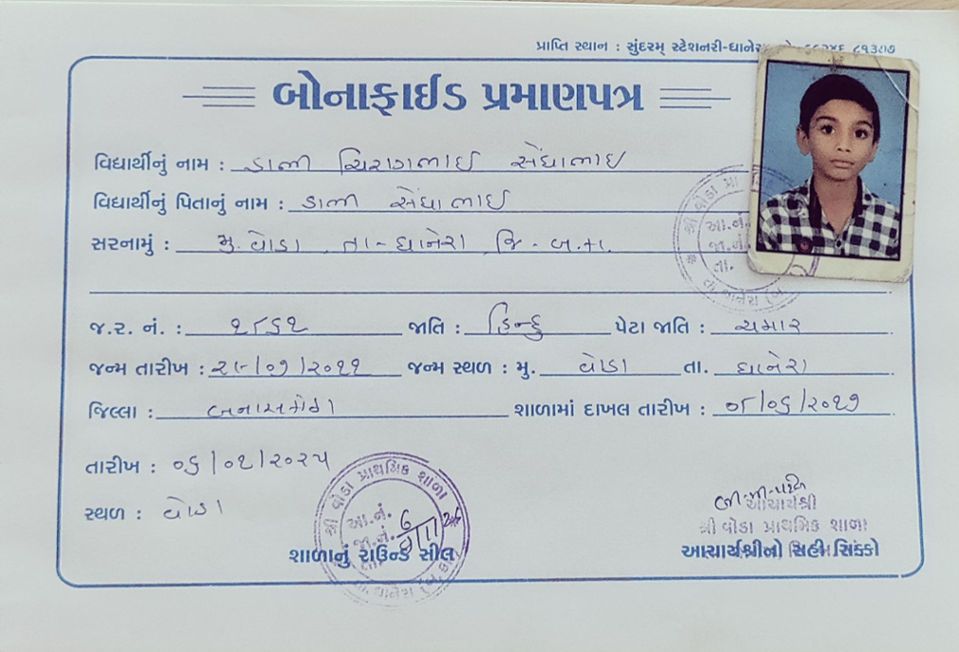 પ્રાપ્તિ સ્થાન : સુંદરમ્ સ્ટેશનરી-ધાનેરા
બોનાફાઈડ પ્રમાણપત્ર
વિદ્યાર્થીનું નામ : ડાભી ચિરાગભાઈ સેંધાભાઈ
વિદ્યાર્થીનું પિતાનું નામ : ડાભી સેંધાભાઈ
સરનામું : મુ. વોડા તા-ધાનેરા જિ-બ.કા.
જ.ર. નં. : ૧૮૬૧ જાતિ : હિન્દુ પેટા જાતિ : ચમાર
જન્મ તારીખ : ૨૯/૦૭/૨૦૧૧ જન્મ સ્થળ : મુ. વોડા તા. ધાનેરા
જિલ્લા : બનાસકાંઠા શાળામાં દાખલ તારીખ : ૦૮/૦૬/૨૦૧૭
તારીખ : ૦૬/૦૧/૨૦૨૫
સ્થળ : વોડા
શ્રી વોડા પ્રાથમિક શાળા
આ.નં.
જા.નં. 6
શાળાનું રાઉન્ડ સીલ
આચાર્યશ્રી
શ્રી વોડા પ્રાથમિક શાળા
આચાર્યશ્રીનો સિહી સિક્કો